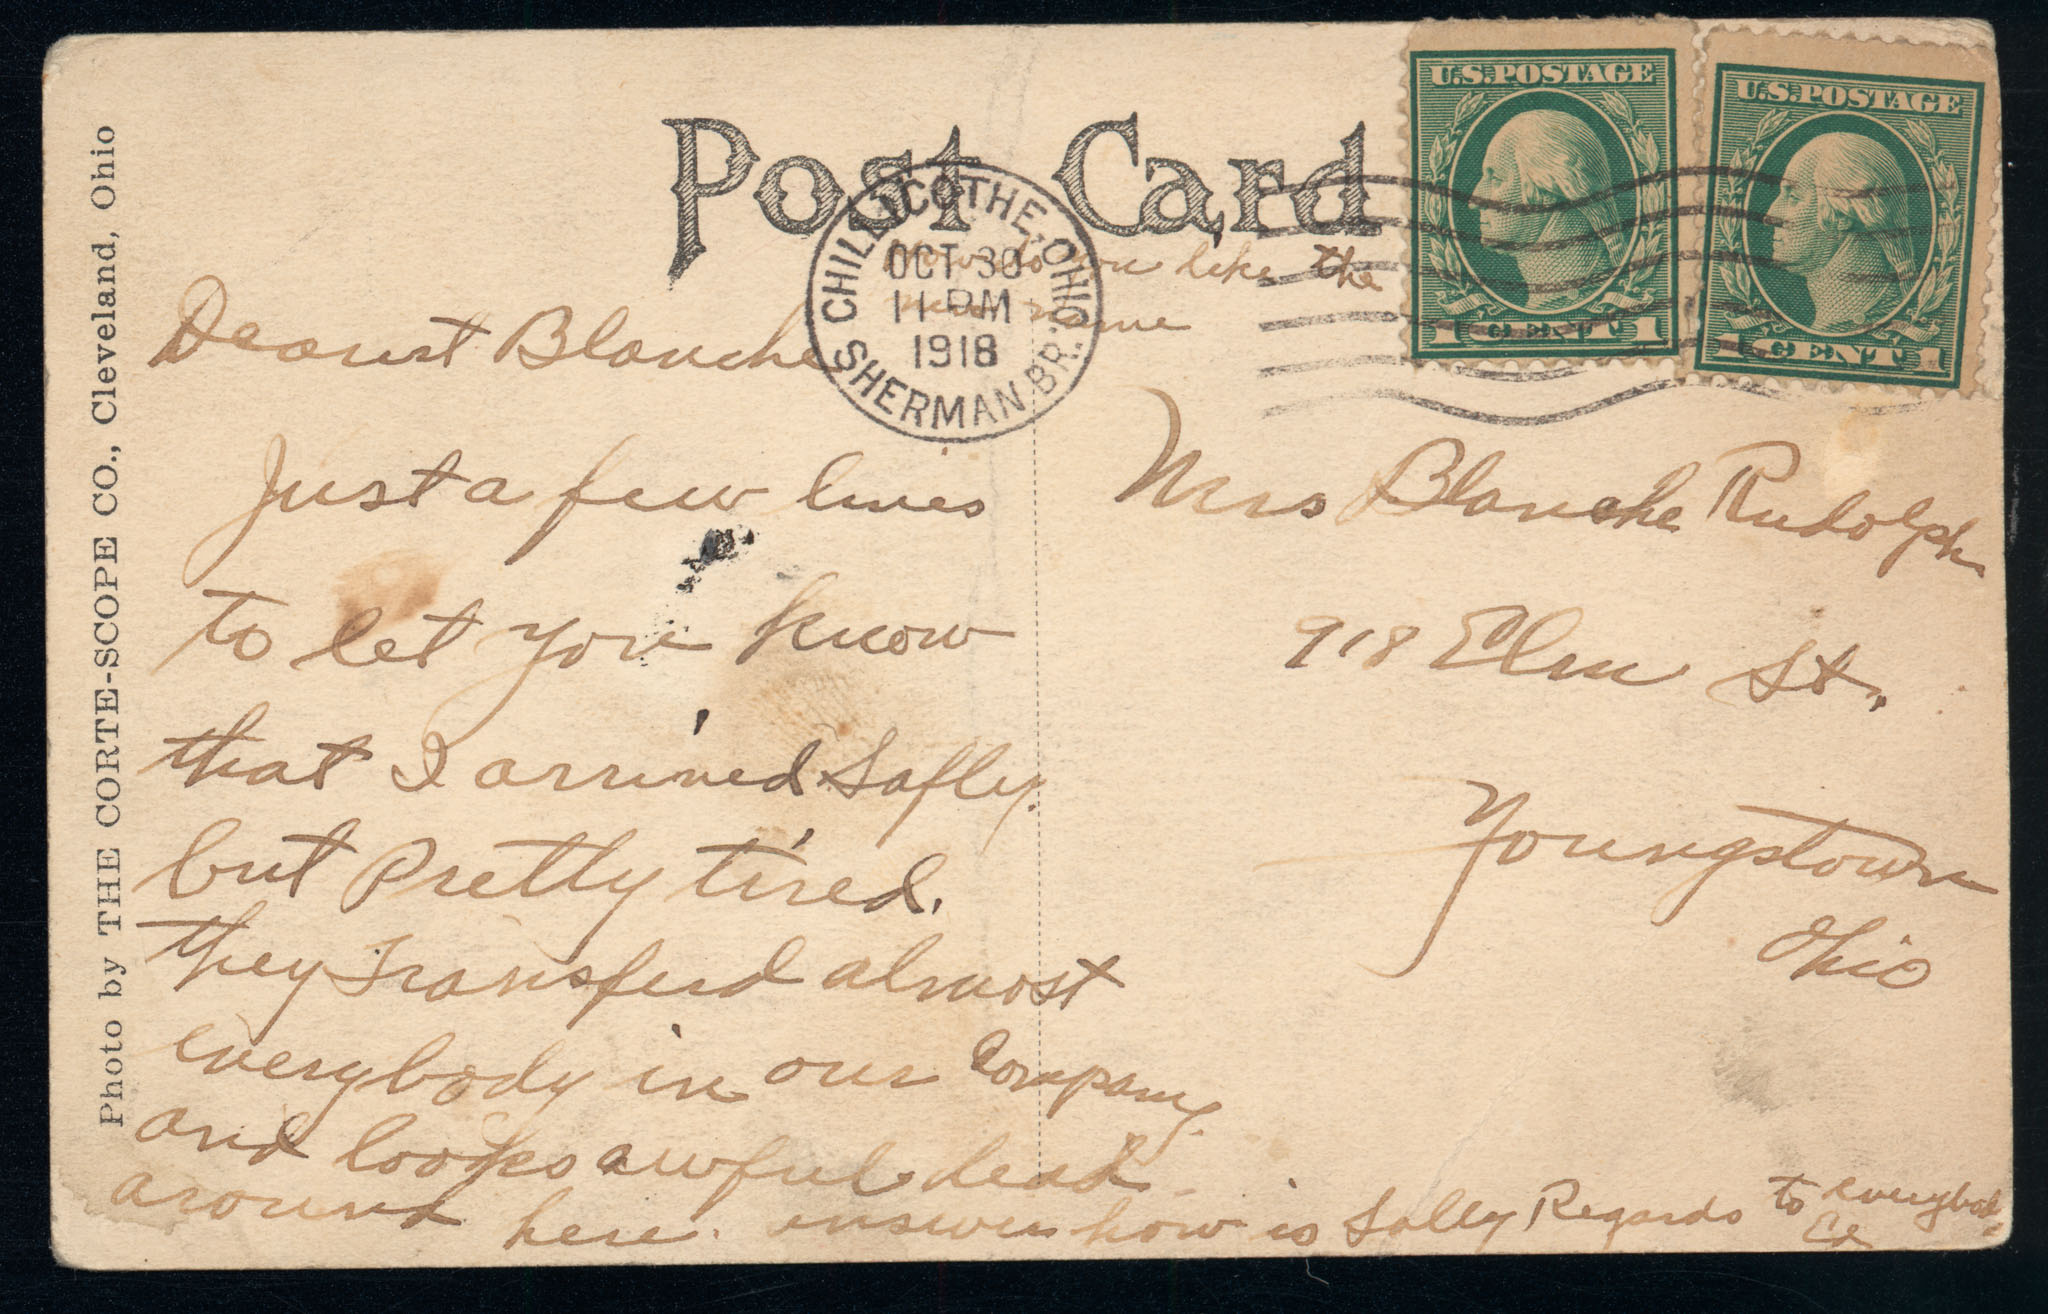 Post Card
U.S.POSTAGE
1 CENT 1
U.S.POSTAGE
1 CENT 1
CHILLICOTHE, OHIO.
OCT 30
11 PM
1918
SHERMAN BR.
How do you like the
new name
Dearest Blanche
Just a few lines
to let you know
that I arrived Safly.
but Pretty tired.
they Transferd almost
everybody in our Company.
and lookes awful dead
around here. answer how is Sally Regards to everybody
Mrs Blanche Rudolph
918 Elm St.,
Youngstown
Ohio
Photo by THE CORTE-SCOPE CO., Cleveland, Ohio